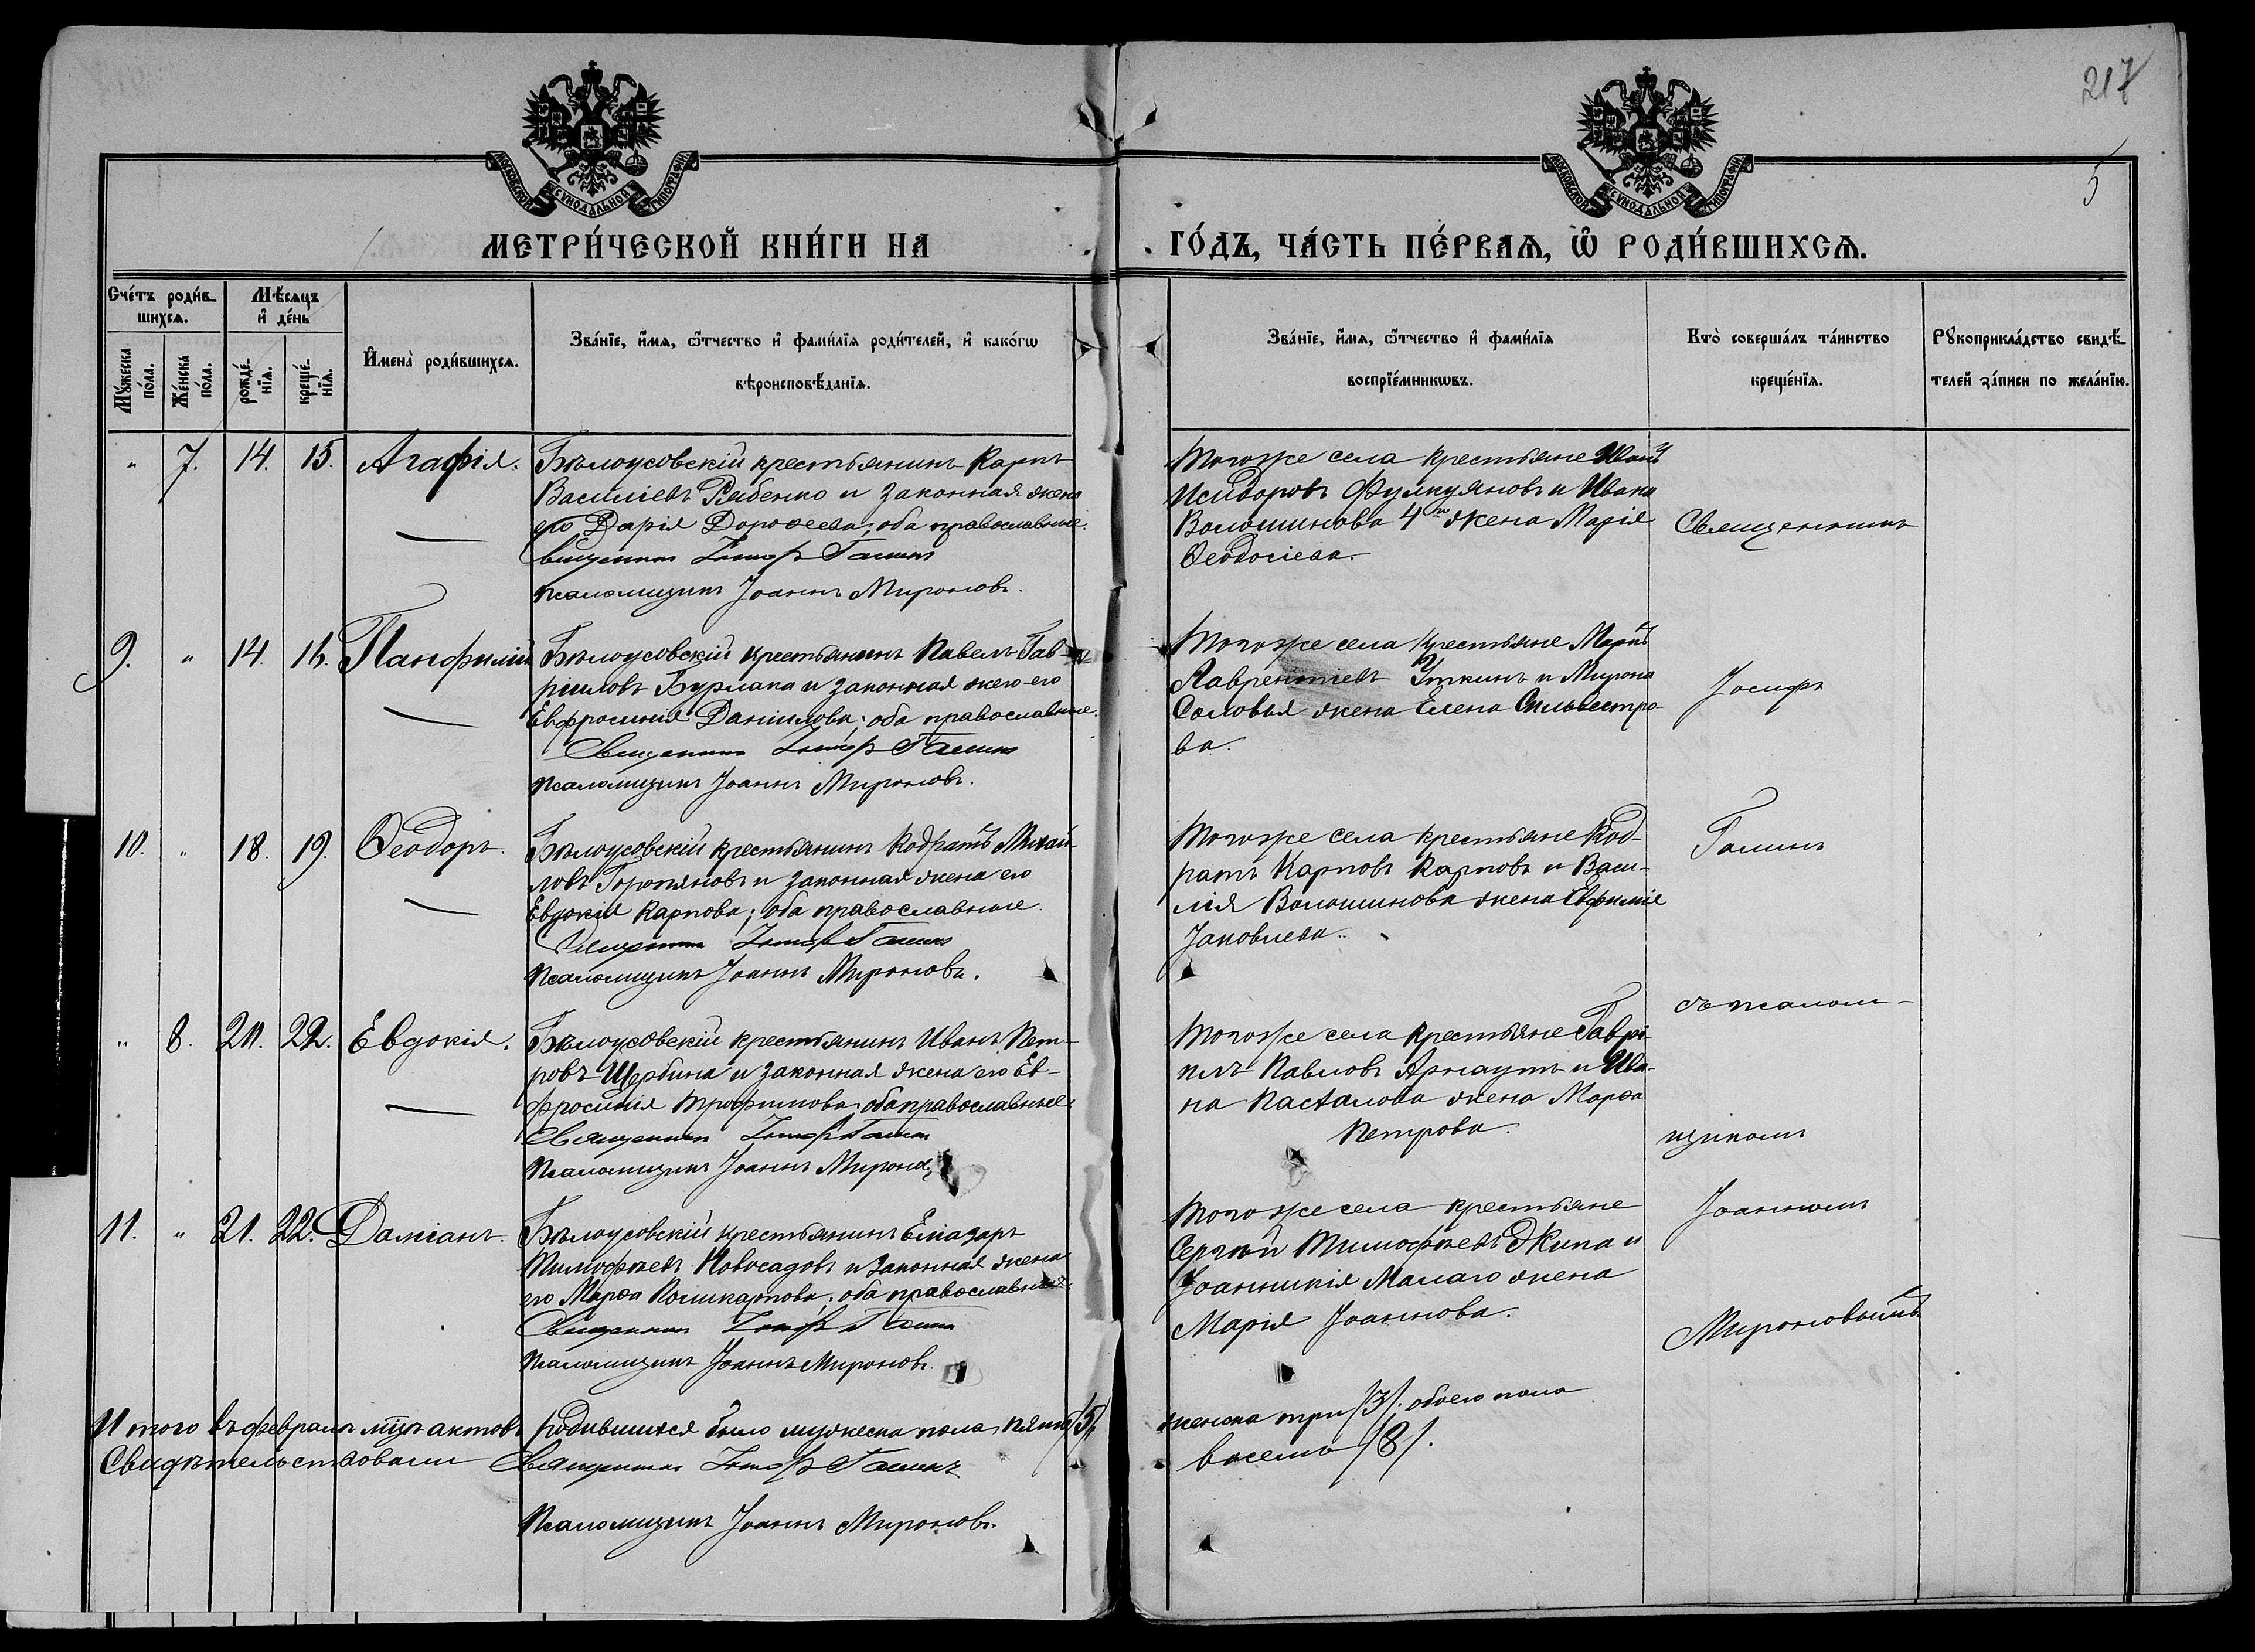 217
5
МОСКОВСКОЙ СѴНОДАЛЬНОЙ ТИПОГРАФІИ
МОСКОВСКОЙ СѴНОДАЛЬНОЙ ТИПОГРАФІИ
МЕТРИ́ЧЕСКОЙ КНИ́ГИ НА
ГО́ДЪ, ЧА́СТЬ ПЕ́РВАѦ, Ѿ РОДИ́ВШИХСѦ.
Сче́тъ роди́в-
шихсѧ.
Мѣ́сѧцъ
и҆ де́нь
Мꙋ́жеска
по́ла.
Же́нска
по́ла.
рожде́-
нїѧ.
креще́-
нїѧ.
И҆мена̀ роди́вшихсѧ.
Зва́нїе, и҆́мѧ, ѻ҆́тчество и҆ фами́лїѧ роди́телей, и҆ како́гѡ
вѣроисповѣ́данїѧ.
Зва́нїе, и҆́мѧ, ѻ҆́тчество и҆ фами́лїѧ
воспрїе́мникѡвъ.
Кто̀ соверша́лъ та́инство
креще́нїѧ.
Рꙋкоприкла́дство свидѣ́-
телей за́писи по жела́нїю.
" 7. 14. 15. Агафія.
Бѣлоусовскій крестьянинъ Карпъ
Василіевъ Рябенко и законная жена
его Дарія Дороѳеева; оба православные.
Священникъ Іосифъ Галинъ
Псаломщикъ Іоаннъ Мироновъ.
Тогоже села крестьяне Иванъ
Исидоровъ и Ивана
Волошинова 4го жена Марія
Ѳеодосіева.
Священникъ
9. " 14. 16. Панфилій
Бѣлоусовскій крестьянинъ Павелъ Гав-
рииловъ Бурлака и законная жена его
Евфросинія Даніилова; оба православные.
Священникъ Іосифъ Галинъ
Псаломщикъ Іоаннъ Мироновъ.
Тогоже села крестьяне Маркъ
Лаврентіевъ Уткинъ и Мирона
Соловья жена Елена Сильвестро-
ва.
Іосифъ
10. " 18. 19. Ѳеодоръ.
Бѣлоусовскій крестьянинъ Кодратъ Михай-
ловъ Горпяновъ и законная жена его
Евдокія Карпова; оба православные.
Священникъ Іосифъ Галинъ
Псаломщикъ Іоаннъ Мироновъ.
Тогоже села крестьяне Код-
ратъ Карповъ Карповъ и Васи-
лія Волошинова жена Евфимія
Іаковлева.
Галинъ
съ псалом-
" 8. 20. 22. Евдокія.
Бѣлоусовскій крестьянинъ Иванъ Пет-
ровъ Щербина и законная жена его Ев-
фросинія Трофимова; оба православные.
Священникъ Іосифъ Галинъ
Псаломщикъ Іоаннъ Мироновъ
Тогоже села крестьяне Гаврі-
илъ Павловъ Арнаутъ и Ива-
на Пасталова жена Марѳа
Петрова.
щикомъ
11. " 21. 22. Даміанъ.
Бѣлоусовскій крестьянинъ Еліазаръ
Тимофѣевъ Новосадовъ и законная жена
его Марѳа Поликарпова; оба православные.
Священникъ Іосифъ Галинъ
Псаломщикъ Іоаннъ Мироновъ.
Тогоже села крестьяне
Сергѣй Тимофѣевъ Жипа и
Іоанникія Малаго жена
Марія Іоаннова.
Іоанномъ
Мироновымъ
Итого въ февралѣ мцѣ актовъ родившихся было мужеска пола пять /5/
женска три /3/. обоего пола
восемь /8/.
Свидѣтельствовали Священникъ Іосифъ Галинъ
Псаломщикъ Іоаннъ Мироновъ.